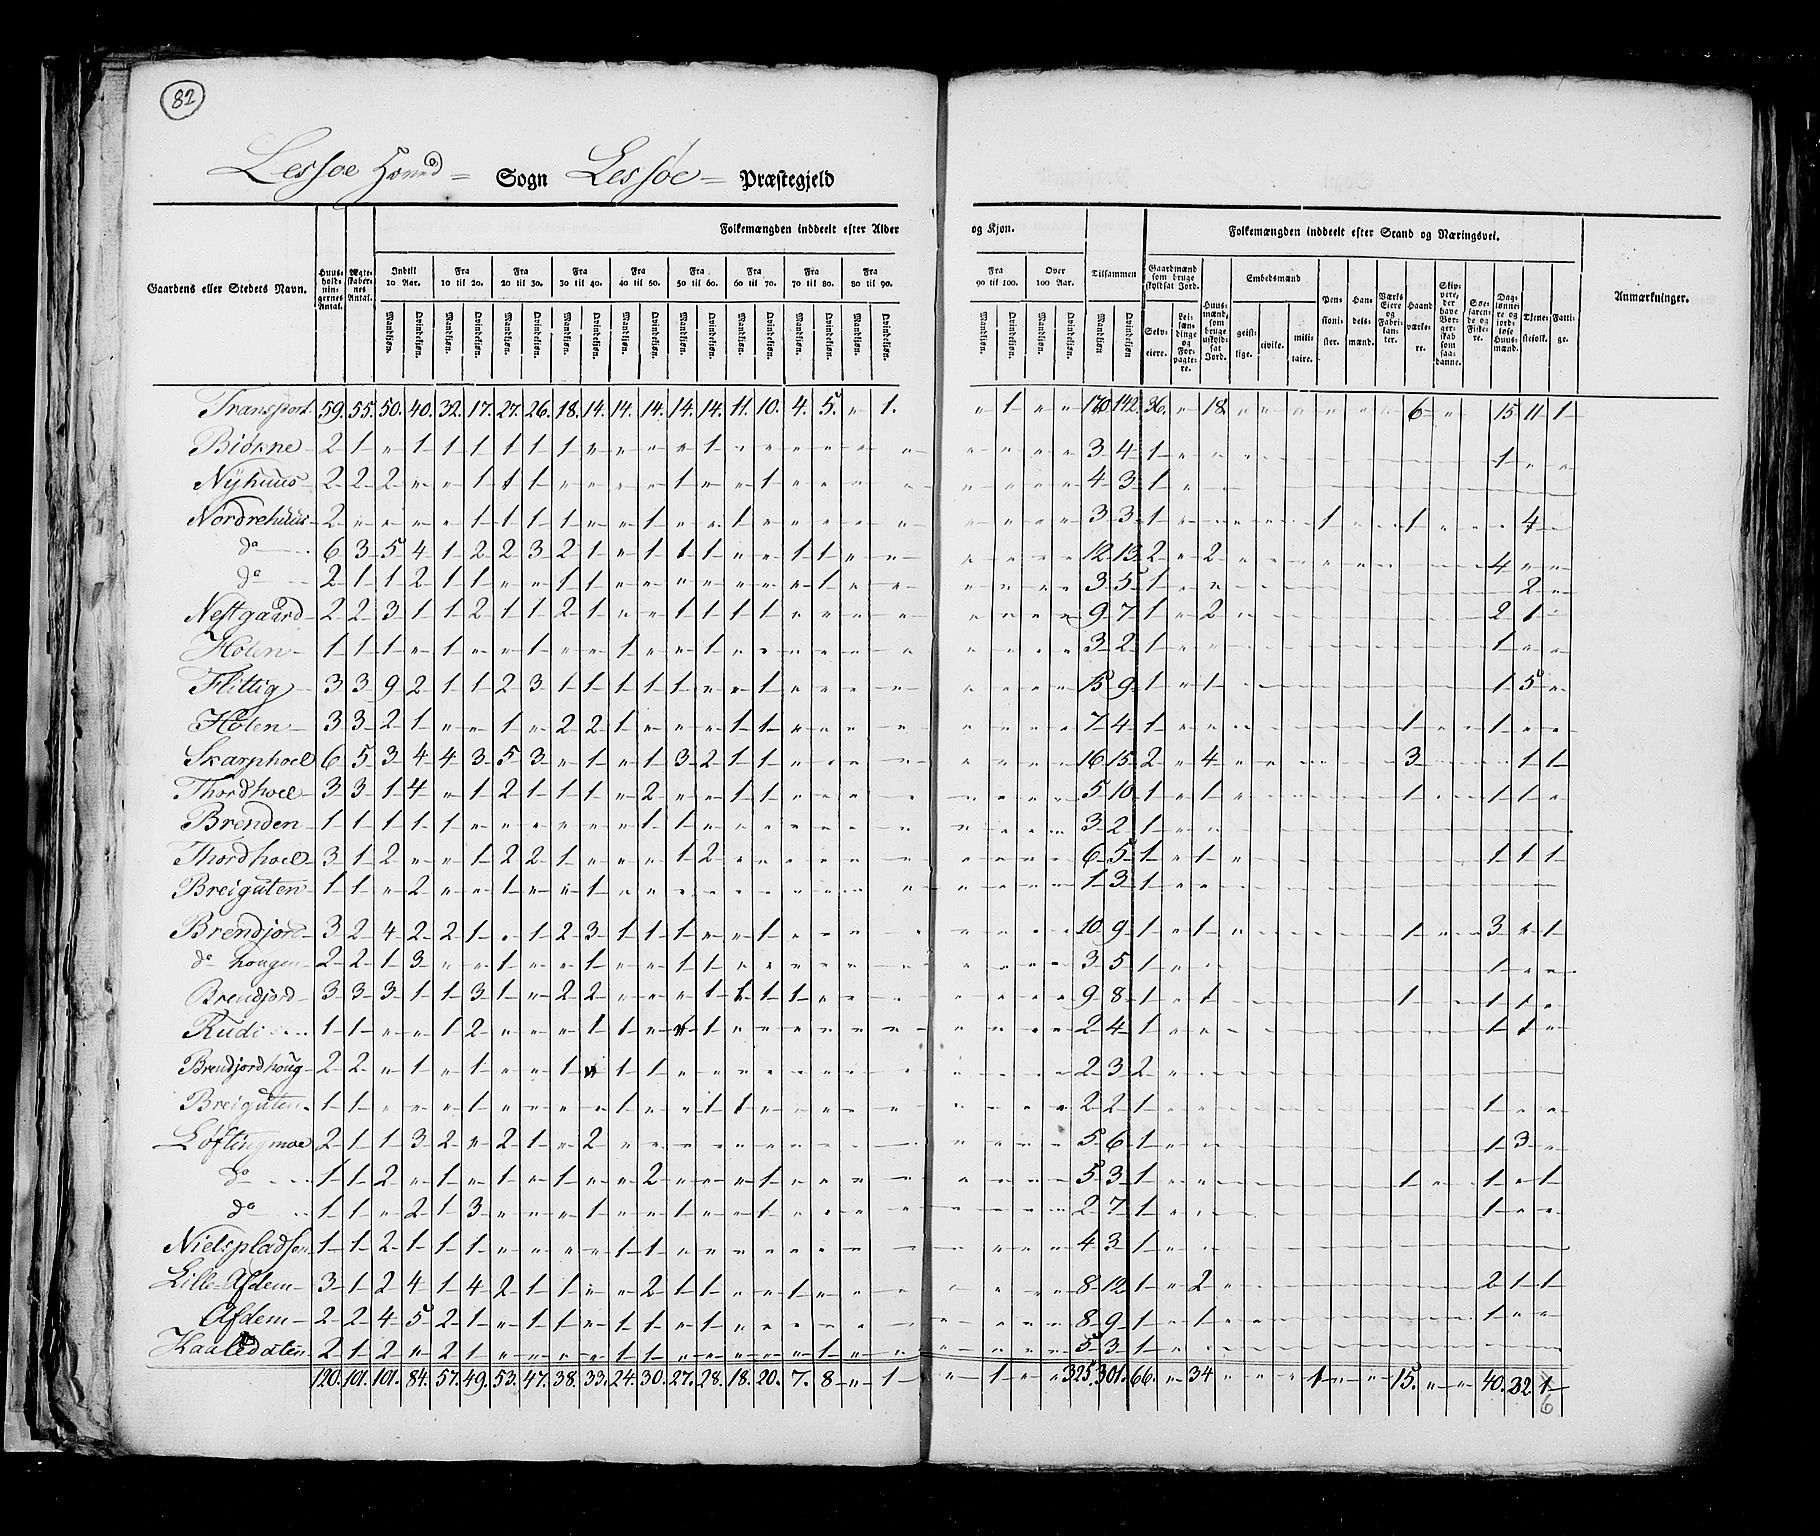 82
Lessøe Hoved= Sogn Lessøe= Præstegjeld
Folkemængden inddeelt efter Alder og Kjøn. Folkemængden inddeelt efter Stand og Næringsvei.
Gaardens eller Stedets Navn. Huusholdningernes Antal. Ægteskabernes Antal. Indtil 10 Aar. Fra 10 til 20. Fra 20 til 30. Fra 30 til 40. Fra 40 til 50. Fra 50 til 60. Fra 60 til 70. Fra 70 til 80. Fra 80 til 90. Fra 90 til 100. Over 100 Aar. Tilsammen Gaardmænd som bruge skyldsat Jord. Huusmænd, som bruge uskyldsat Jord. Embedsmænd Pensionister. Handelsmænd. Værks Eiere og Fabrikanter. Haandværkere. Skippere, der have Borgerskab som saadanne. Søefarende og Fiskere. Dagleønnere og jordløse Huusmænd. Tjenestefolk. Fattige. Anmærkninger.
Mandkiøn. Qvindekiøn. Mandkiøn. Qvindekiøn. Mandkiøn. Qvindekiøn. Mandkiøn. Qvindekiøn. Mandkiøn. Qvindekiøn. Mandkiøn. Qvindekiøn. Mandkiøn. Qvindekiøn. Mandkiøn. Qvindekiøn. Mandkiøn. Qvindekiøn. Mandkiøn. Qvindekiøn. Mandkiøn. Qvindekiøn. Mandkiøn Qvindekiøn. Selveiere. Leilændinge og Forpagtere. geistlige. civile. militaire.
Transport 59. 55. 50. 40. 32. 17. 27. 26. 18. 14. 14. 14. 14. 14. 11. 10. 4. 5. " 1. " 1 " " 170 142. 36. " 18 " " " " " " 6 " " 15 11 1
Biørne 2 1 " 1 1 1 1 1 1 " " " " 1 " " " " " " " " " " 3 4 1 " " 1 " "
Nÿhuus 2 2 2 " " 1 1 1 " " " " 1 " " 1 " " " " " " " " 4 3 1 "
Nordrehuus 2 " " " " 1 1 1 1 " " 1 " " 1 " " " " " " " " " 3 3 1 " " 1 1 4
do 6 3 5 4 1 2 2 3 2 1 " 1 1 1 " " 1 1 " " " " " " 12 13 2 " 2 4 " "
do 2 1 1 2 1 1 " " 1 1 " " " " " " " 1 " " " " " " 3 5 1 " " 2 "
Nestgaard 2 2 3 1 1 2 1 1 2 1 " " 1 1 1 1 " " " " " " " " 9 7 1 " 2 2 1
Holen 1 1 1 " 1 " " 1 " " 1 " " 1 " " " " " " " " " " 3 2 1 " " 1 " "
Flittig 3 3 9 2 1 1 2 3 1 1 1 1 1 " " 1 " " " " " " " " 15 9 1 " 1 1 5 "
Holen 3 3 2 1 " " 1 " 2 2 1 " " " 1 1 " " " " " " " " 7 4 1 " " 1 1 " "
Skarphoel 6 5 3 4 4 3 5 3 " 1 " 1 3 2 1 1 " " " " " " " " 16 15 2 " 4 3 1 1
Thordhoel 3 3 1 4 " 1 2 1 1 1 " 2 " " 1 1 " " " " " " " " 5 10 1 " 1 1 1 1 "
Brenden 1 1 1 1 1 " " " " " " 1 1 " " " " " " " " " " " 3 2 1 " "
Thordhoel 3 1 2 " " 1 2 2 1 " " " 1 2 " " " " " " " " " " 6 5 1 " 1 1 1 1
Breiguten 1 1 " 2 " " 1 " " 1 " " " " " " " " " " " " " " 1 3 1 " "
Brendjord 3 2 4 2 2 1 " 1 2 3 1 1 1 " " 1 " " " " " " " " 10 9 1 " 1 1 3 " 1
do hougen 2 2 1 3 " " 1 " " 1 " " 1 1 " " " " " " " " " " 3 5 1 " " 1 " "
Brendjord 3 3 3 1 1 3 1 " 2 2 " " " 1 1 1 1 " " " " " " " 9 8 1 " 1 1 1 1 "
Rudi 1 1 " " 1 2 " " " 1 1 " " 1 " " " " " " " " " " 2 4 1 " " 1 1 "
Brendjordhoug 2 2 " 1 " 1 " " 1 " 1 1 " " " " " " " " " " " " 2 3 2 " "
Breiguten 1 1 " " " 1 " " " " 1 " " 1 1 " " " " " " " " " 2 2 1 " " 1 " "
Löftingmoe 2 1 1 3 2 " 2 1 " 2 " " " " " " " " " " " " " " 5 6 1 " " 1 3 "
do 1 1 2 " 1 " 1 " 1 " " 2 " " " 1 " " " " " " " " 5 3 1 " " 1 1 " 1
do 1 1 " 2 1 3 " " " 1 " " 1 " " 1 " " " " " " " " 2 7 1 " " 1 " "
Nielspladsen 1 1 2 1 1 1 " " " " 1 1 " " " " " " " " " " " " 4 3 1 " "
Lille-Afdem 3 1 2 4 1 4 2 1 1 " " 2 1 1 " " 1 " " " " " " " 8 12 1 " 2 2 1 1
Afdem 2 2 4 5 2 1 " 1 1 " 1 1 " 1 " " " " " " " " " " 8 9 1 " 1 1 " "
Kaaledalen 2 1 2 " 2 1 " " " " 1 1 " " " " " 1 " " " " " " 5 3 1 "
120. 101. 101. 84. 57. 49. 53. 47. 38. 33. 24. 30. 27. 28. 18. 20. 7. 8 " 1 " 1 " " 325. 301. 66. " 34 " " " 1 " " 15. " " 40. 32. 1
6